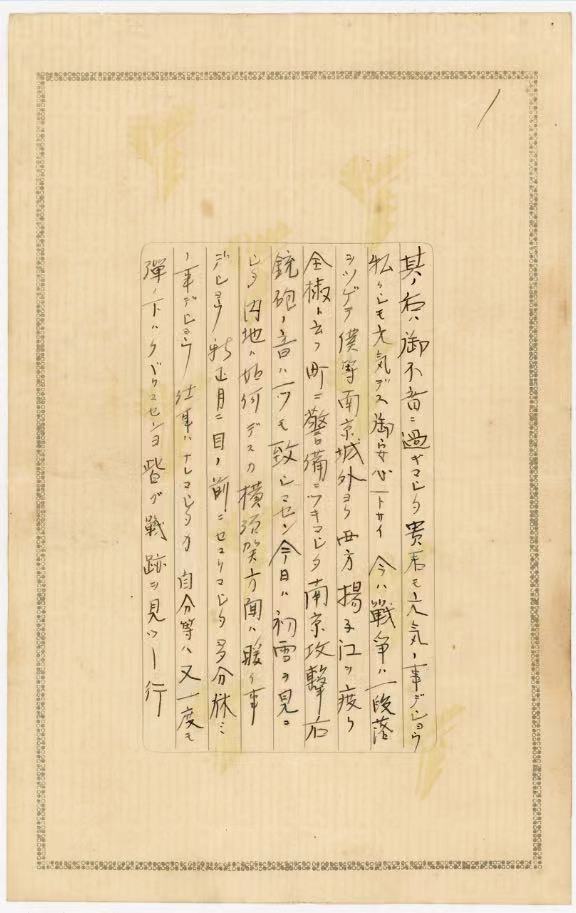 其ノ后ハ御不音ニ過ギマシタ貴君モ元気ノ事デショウ
私クシモ元気デス御安心下サイ 今ハ戦争ハ一段落
ヲツゲテ僕等南京城外ヨリ西方揚子江ヲ渡リ
全椒ト云フ町ニ警備ニツキマシタ南京攻撃后
銃砲ノ音ハ一ツモ致シマセン今日ハ初雪ヲ見マ
シタ内地ハ如何デスカ横須賀方面ハ暖イ事
デショウ 新正月ニ目ノ前ニセマリマシタ多分休ミ
ノ事デショウ 仕事ハナレマシタカ 自分等ハ又一度モ
弾ノ下ハクバリマセンヨ皆ガ戦跡ヲ見ツー行